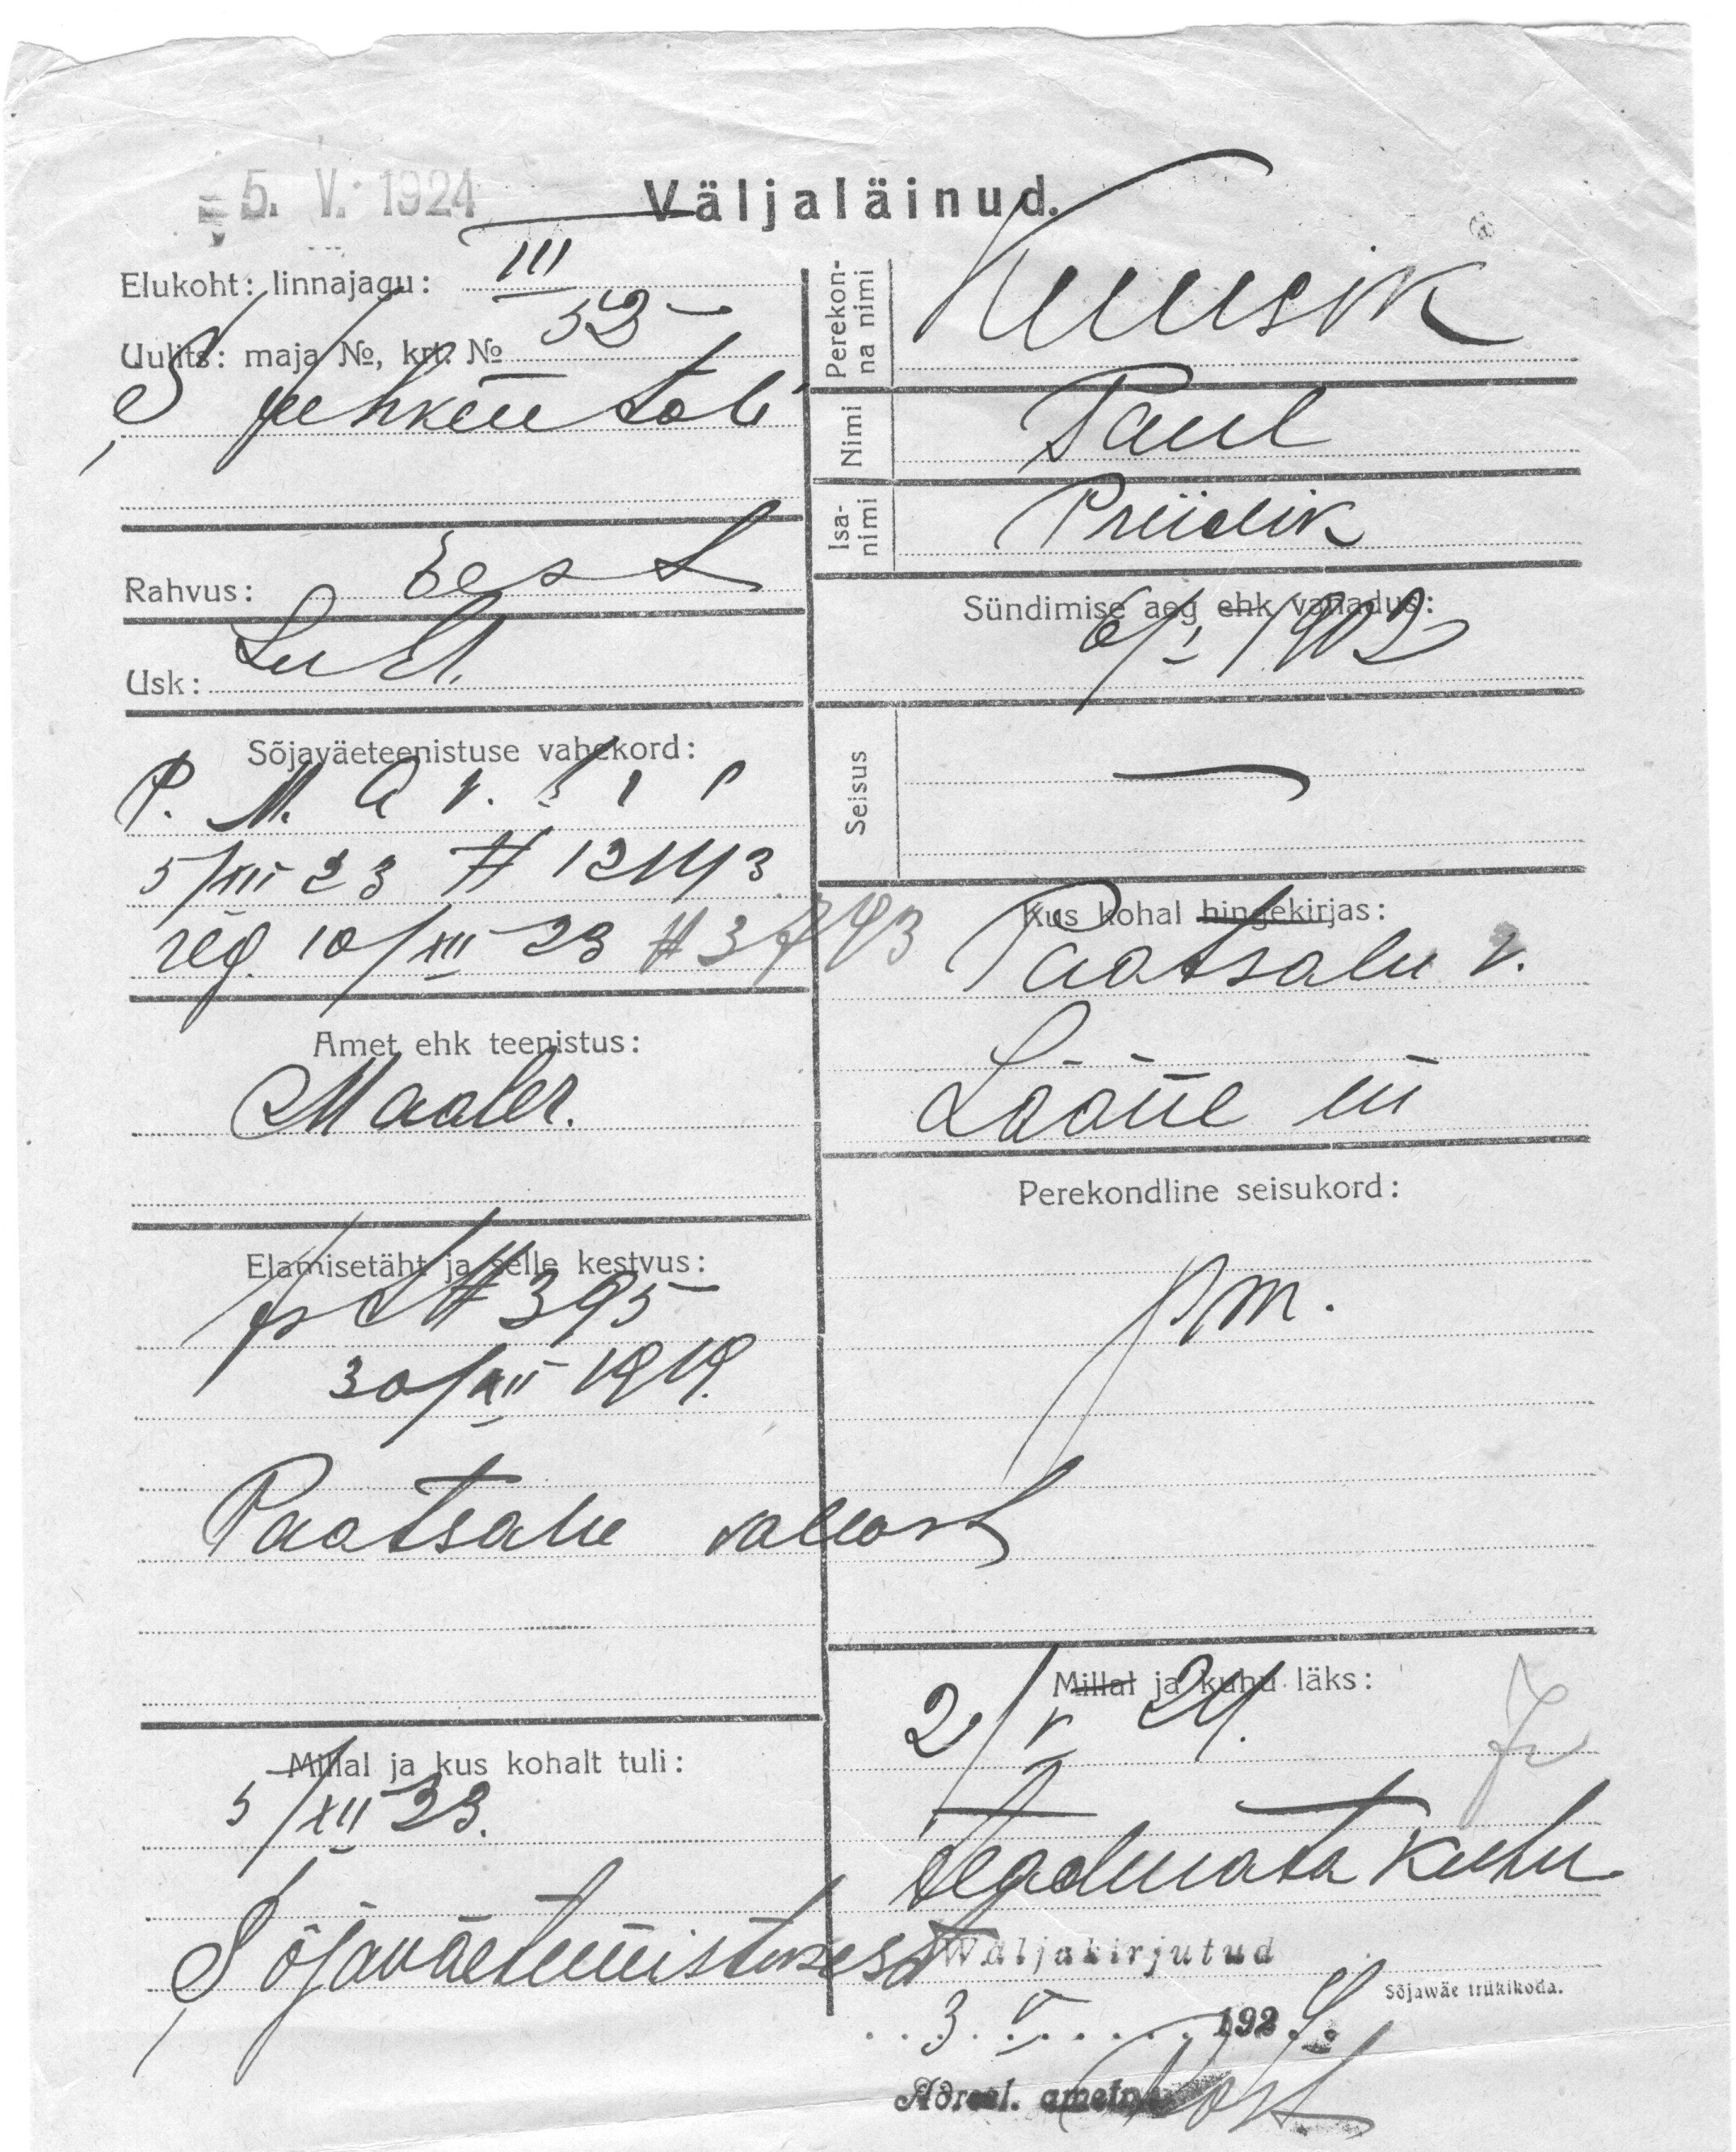 5. V. 1924
Väljaläinud.
Elukoht: linnajagu: III
Uulits: maja №, krt. № 52
S Juhkentali
Rahvus: Eest
Usk: Lut.
Sõjaväeteenistuse vahekord:
P. M. A v.
5/XII 23 # 12143
reg. 10/XII 23 # 3743
Amet ehk teenistus:
Maaler.
Elamisetäht ja selle kestvus:
# 395
30/XII 1919.
Paatsalu vallast
Millal ja kus kohalt tuli:
5/XII 23.
Sõjaväeteenistusest
Perekon-
na nimi
Kuusik
Nimi
Paul
Isa-
nimi
Priidik
Sündimise aeg ehk vanadus:
6/I 1902
Seisus
—
Kus kohal hingekirjas:
Paatsalu v.
Lääne m
Perekondline seisukord:
pm.
Millal ja kuhu läks:
2/V 24.
Teadmata kuhu
Wäljakirjutud
3. V 1924.
Sõjawäe trükikoda.
Adresl. ametn.